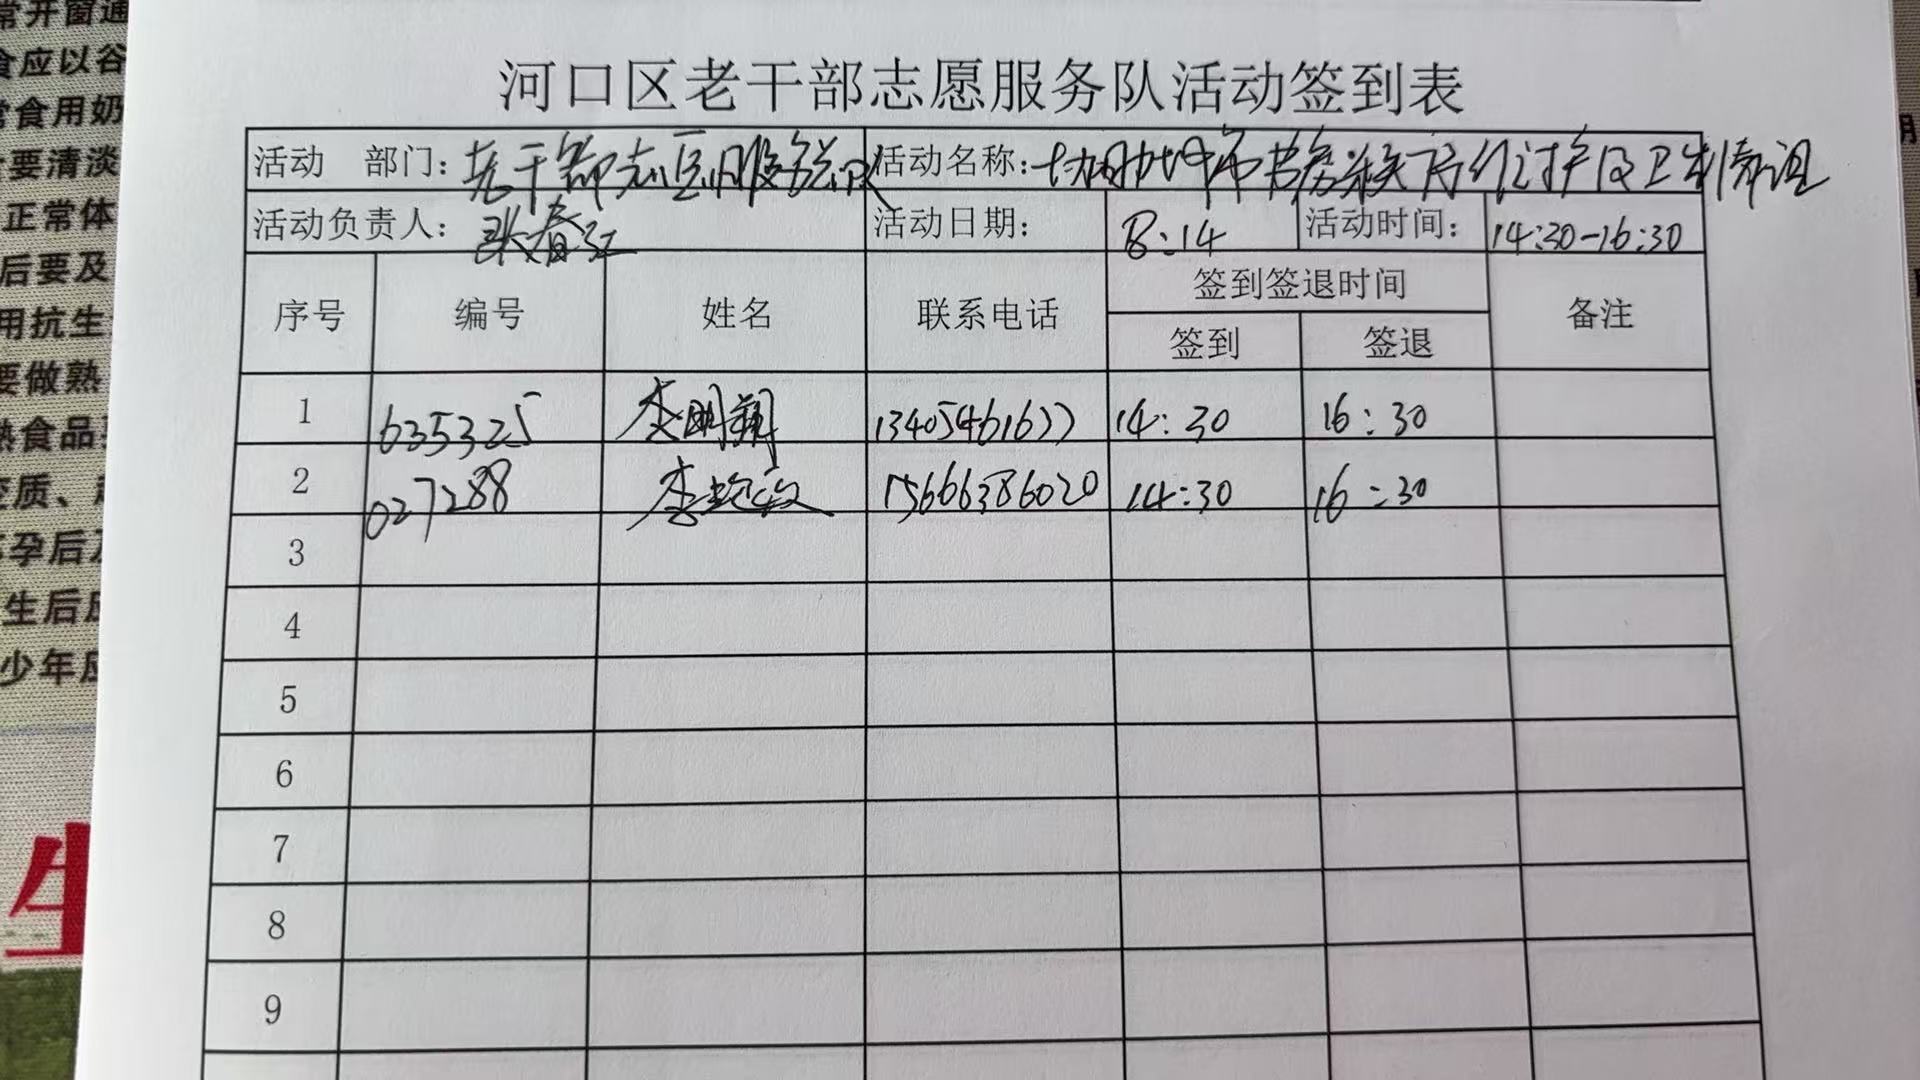 常开窗通
食应以谷
常食用奶
要清淡
正常体
后要及
用抗生
要做熟
熟食品
变质、
孕后
生后
少年应
生
河口区老干部志愿服务队活动签到表
活动 部门：老干部志愿服务总队 活动名称：
活动负责人：张春江 活动日期： 8:14 活动时间： 14:30-16:30
序号 编号 姓名 联系电话 签到签退时间 备注
签到 签退
1 635325 李明翔 13405461677 14:30 16:30
2 027288 李 15666386020 14:30 16:30
3
4
5
6
7
8
9